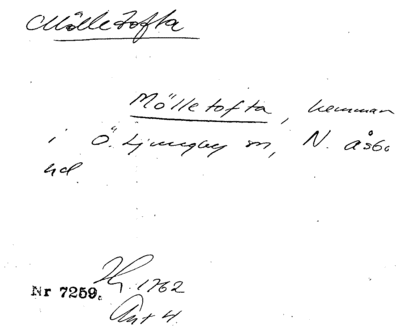 Mölletofta
Mölletofta, hemman
i Ö. Ljungby sn, N. Åsbo
hd.
1762
Nr 7259.
Art 4.